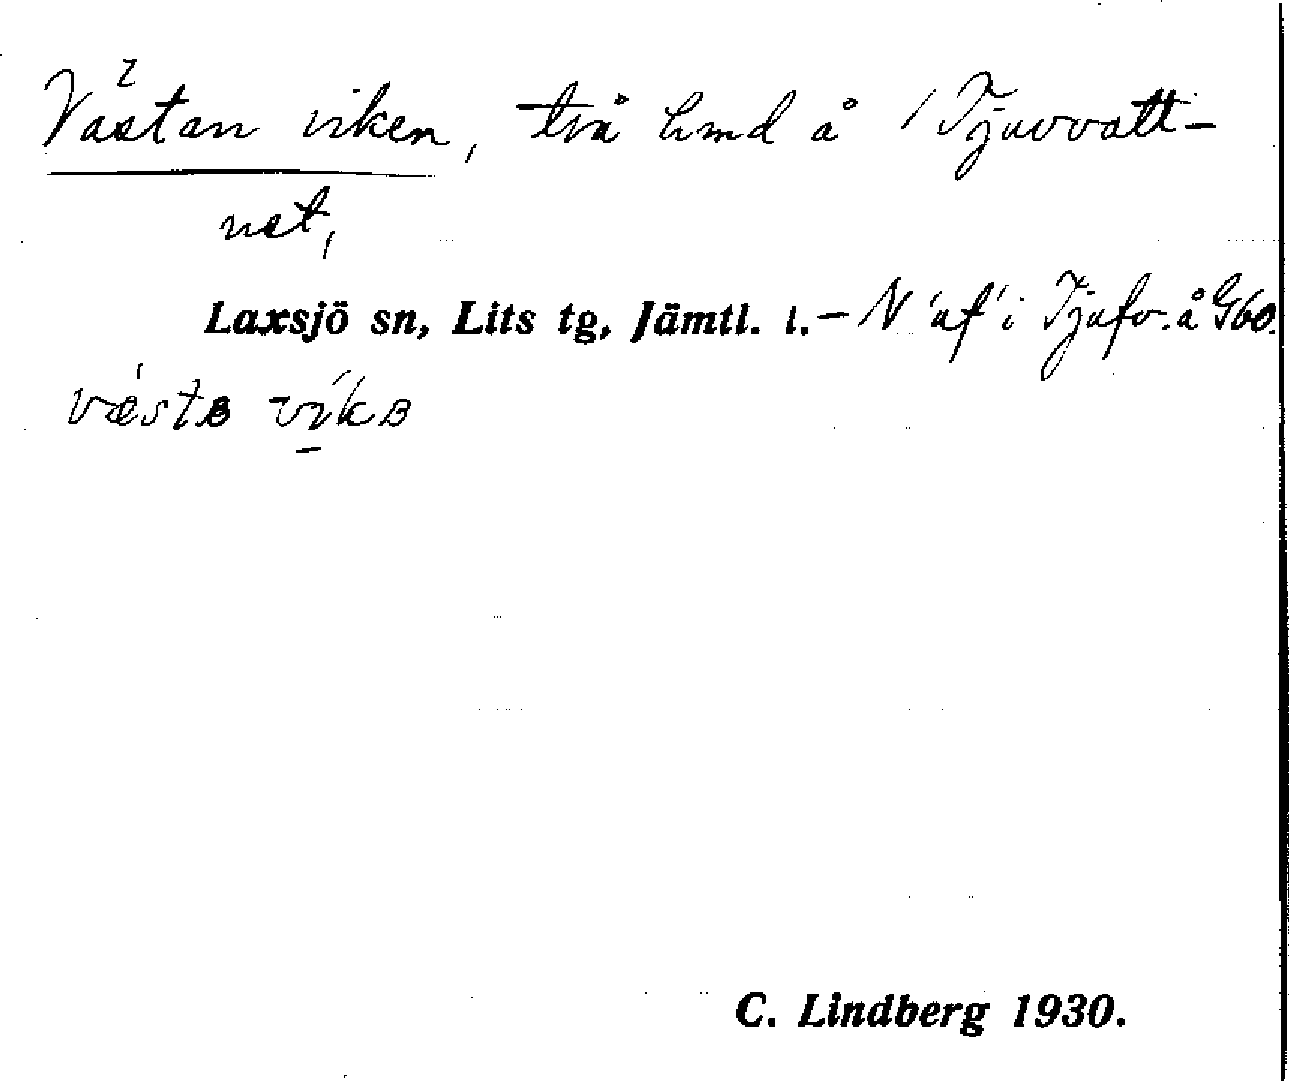 Västan viken, två hmd å / Tjuvvatt-
net,
Laxsjö sn, Lits tg, Jämtl. l. – N 'af' i Tjufv. å G60.
væ´stʙ víkʙ
C. Lindberg 1930.